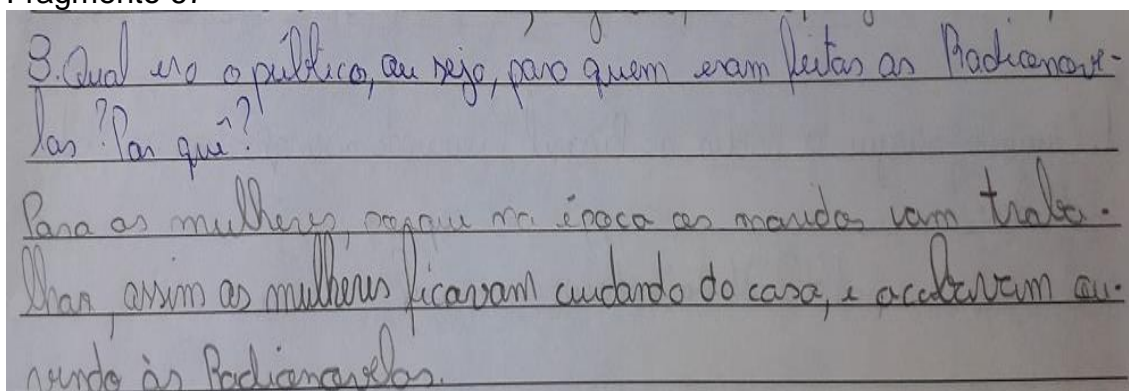 3. Qual era o público, ou seja, para quem eram feitas as Radionove-
las? Por quê?
Para as mulheres, porque na época os maridos iam traba-
lhar, assim as mulheres ficavam cuidando da casa, e acabavam ou-
vindo às Radionovelas.